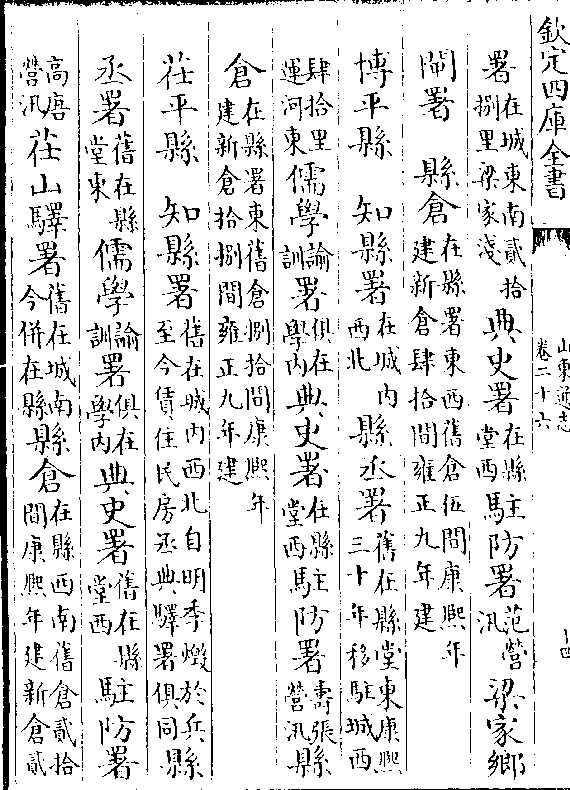 欽定四庫全書
山東通志
卷二十六
十四
署在城東南貳拾捌里梁家淺典史署在縣堂西駐防署范營汛梁家鄉
閘署 縣倉在縣署東西舊倉伍間康熙 年建新倉肆拾間雍正九年建
博平縣 知縣署在城内西北 縣丞署舊在縣堂東康熙三十年移駐城西
肆拾里運河東儒學諭訓署俱在學内典史署在縣堂西駐防署壽張營汛縣
倉在縣署東舊倉捌拾間康熙 年建新倉拾捌間雍正九年建
茌平縣 知縣署舊在城内西北自明季燬於兵至今賃住民房丞典驛署俱同縣
丞署舊在縣堂東儒學諭訓署俱在學内典史署舊在縣堂西 駐防署
高唐營汛茌山驛署舊在城南今併在縣縣倉在縣西南舊倉貳拾間康熙年建新倉貳